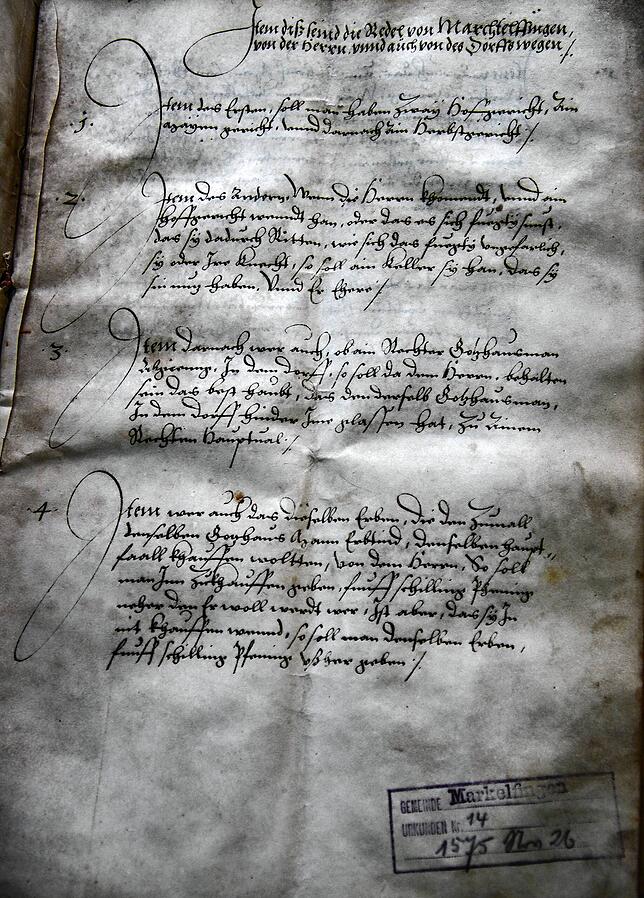 Item diß seind die Redel von Marchelffingen,
von der Herrn, vnnd auch von des Dorffs wegen /.
1. Item des Ersten, soll man haben Zway Hofgericht, Ain
mayen gericht, vnnd darnach ain Herbstgericht /.
2. Item des Andern, Wenn die Herrn khoment, vnnd ain
Hoffgericht wendt han, oder das es sich fuogty sunst,
das sy dadurch Ritten, wie sich das fuogty vngefarlich,
sy oder Ire Knecht, so soll ain Keller sy han, das sy
sin nug haben, Vnnd Er Ehere /.
3. Item darnach wer auch, ob ain Rechter Gotzhausman
abgieng, In dem dorff, so soll da dem Herrn, behalten
sein das best haubt, das den derselb Gotzhausman,
In dem dorff hinder Ime gelassen hat, zu einem
Rechten Hauptual /.
4. Item wer auch das dieselben Erben, die den Zumall
denselben Gotzhaus Mann Erbtind, denselben haupt-
faall khauffen woltten, von dem Herrn, So soll
man Inn zukhauffen geben, funff schilling Pfening
neher den Er woll werdt wer, Ist aber, das sy In
nit khauffen wennd, so soll man denselben Erben,
funff schilling Pfening vßher geben /.
GEMEINDE Markelfingen
URKUNDEN Nr. 14
1575 Nov 26